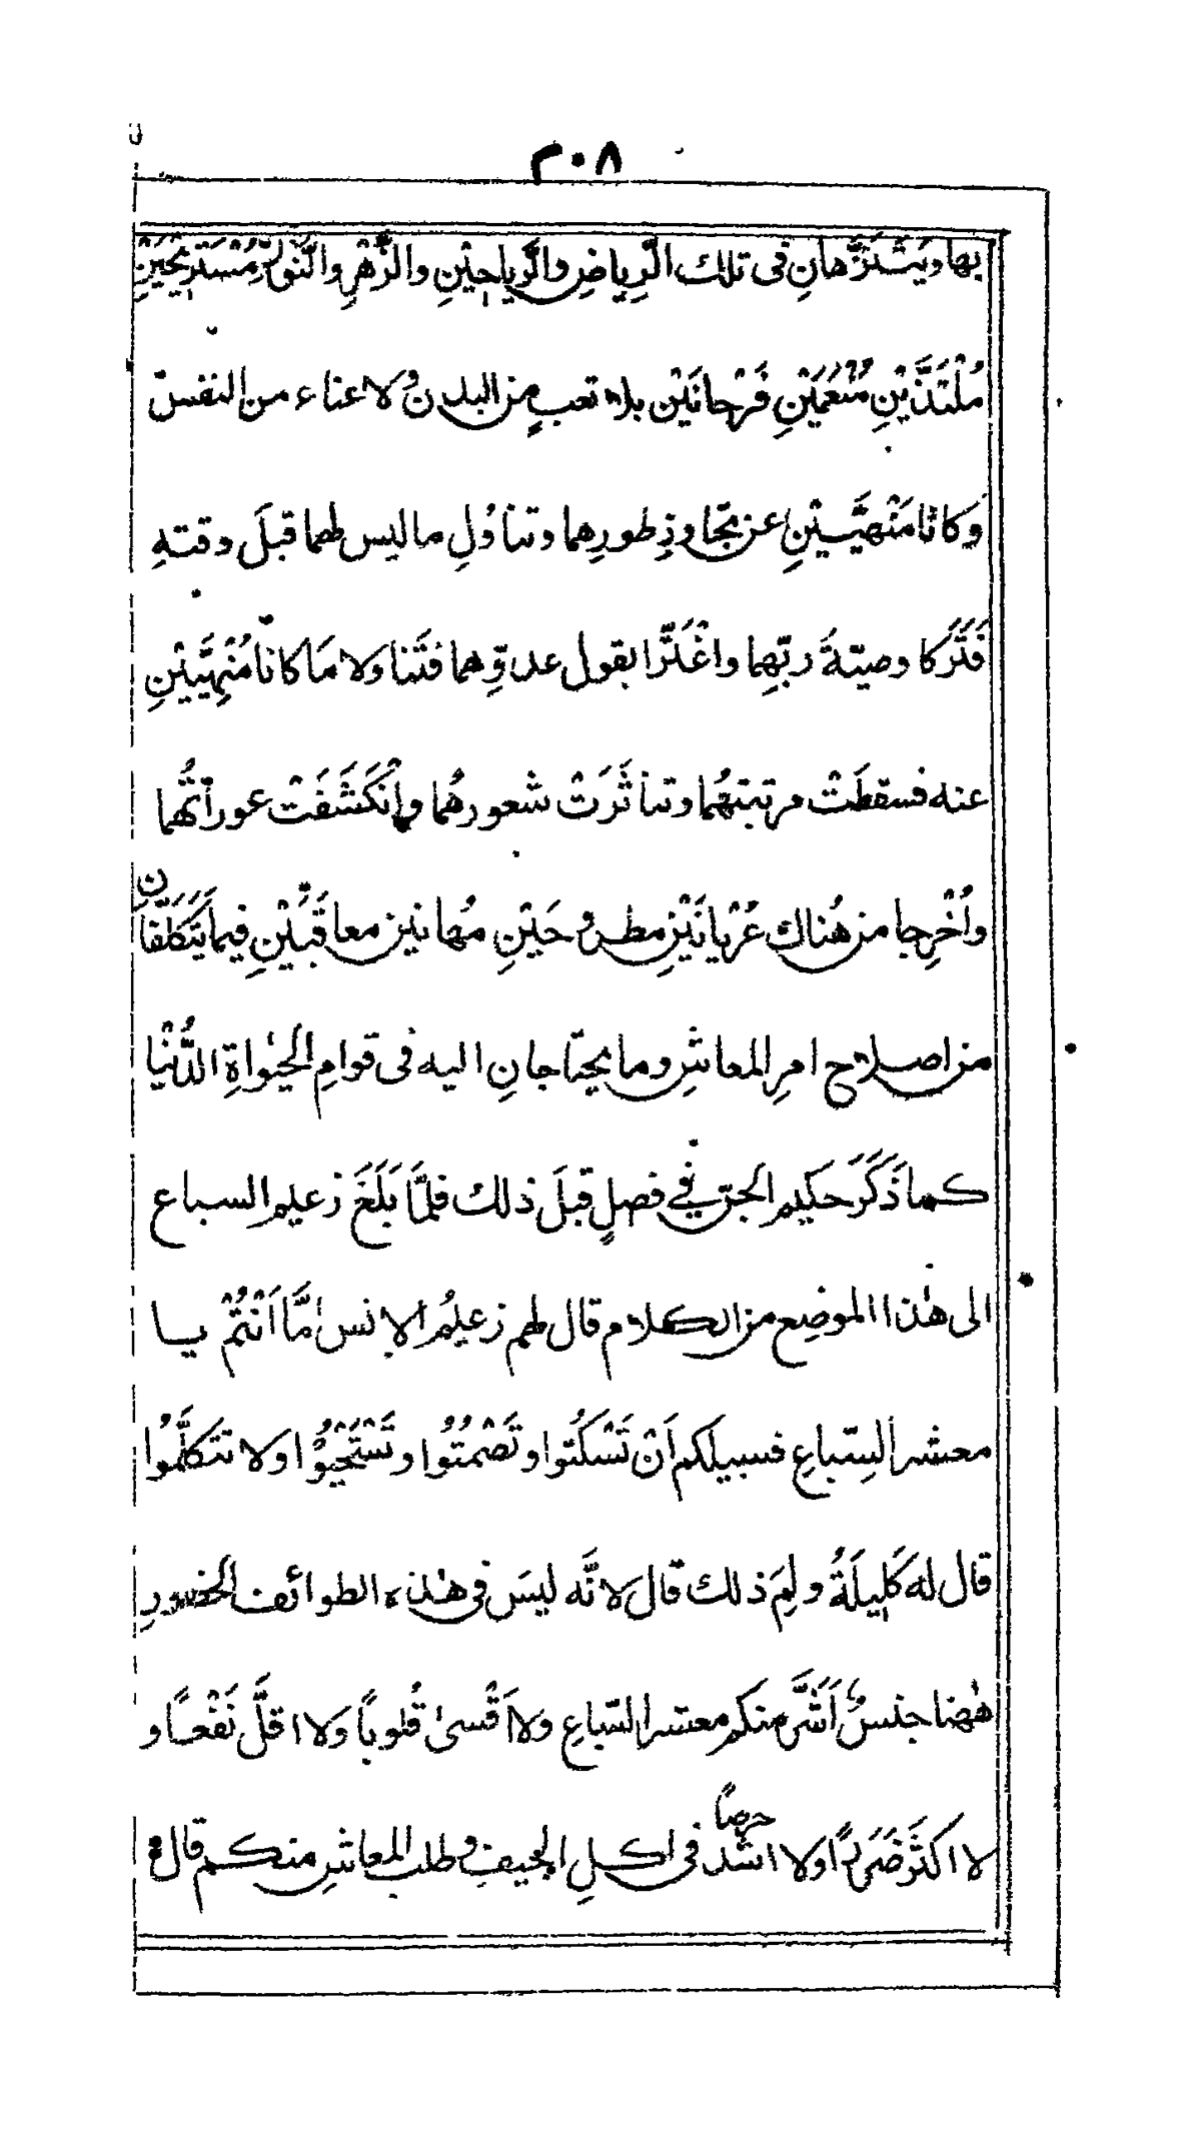 ٢٠٨
بها ويَتَنَزَّهانِ فى تلك الرِّياضِ والرَّياحِيْنِ والزَّهْرِ والنَّوْرِ مُسْتَرِيْحَيْنِ
مُلْتَذَّيْنِ مُتَنَعِّمَيْنِ فَرْحانَيْن بلا تعبٍ من البدن ولا عناء من النفس
وكانا مَنْهِيَّيْنِ عن تجاوذِ طورِهما وتناوُلِ ما ليس لهما قبلَ وقتهِ
فَتَرَكا وصيّةَ ربّهِما واغْتَرَّا بقول عدوِّهما فتَناولا مَا كانا مَنْهِيَّيْنِ
عنه فسقطَتْ مرتبتُهُما وتناثَرَتْ شعورهُما وانْكَشَفَتْ عوراتُهما
واُخْرِجا من هُناك عُرْيانَيْنِ مطروحَيْنِ مُهانين معاقَبَيْنِ فيما يَتَكَلَّفان
من اصلاح امرِ المعاشِ وما يحتاجانِ اليه فى قوامِ الحيٰواةِ الدُّنْيا
كما ذَكَرَ حكيم الجنّ في فصلٍ قبلَ ذلك فلمَّا بَلَغَ زعيم السباع
الى هٰذا الموضِعِ من الكلام قال لهم زعيمُ الانس اَمَّا اَنْتُمْ يا
معشر السِّباعِ فسبيلكم اَنْ تَسْكُتوا وتَصْمُتُوا وتَسْتَحْيُوْا ولا تتكلَّمُوا
قال له كَلِيلَةُ ولِمَ ذلك قال لانَّه ليسَ فى هٰذه الطوائف الحضورِ
هٰهنا جنسٌ اَشَّرَ منكم معشر السّباعِ ولا اَقْسىٰ قُلوباً ولا اقلَّ نَفْعاً و
لا اكثَرَ ضَرَراً ولا اشدّ حرصًا فى اكلِ الجيفِ وطلب المعاشِ منكم قال